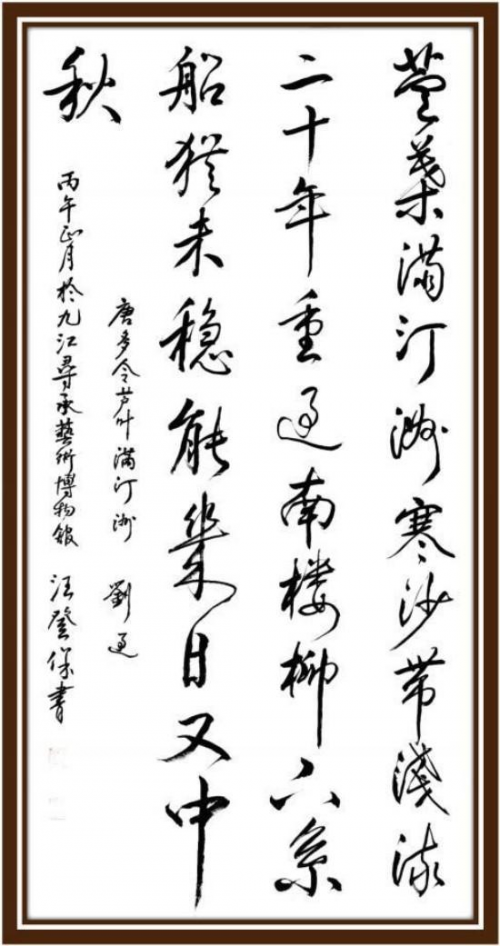 蘆葉满汀洲寒沙带淺流
二十年重過南楼柳下系
船猶未稳能幾日又中
秋
唐多令芦叶满汀洲 劉過
丙午正月於九江尋承藝術博物館 汪登保書